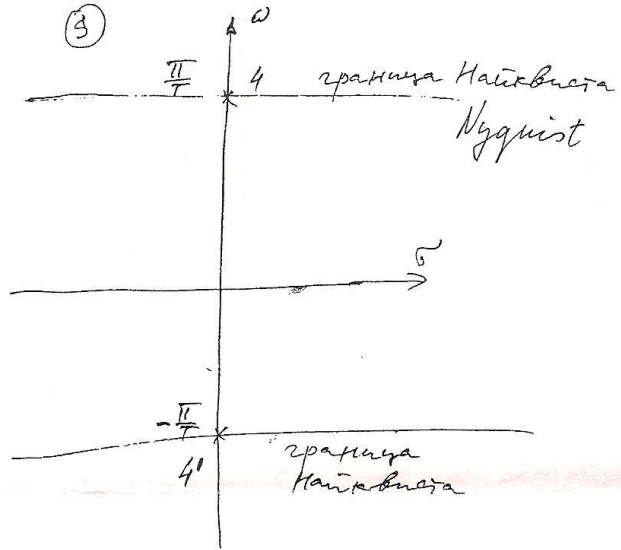 9
ω
π/T 4 граница Найквиста
Nyquist
σ
-π/T
4' граница
Найквиста